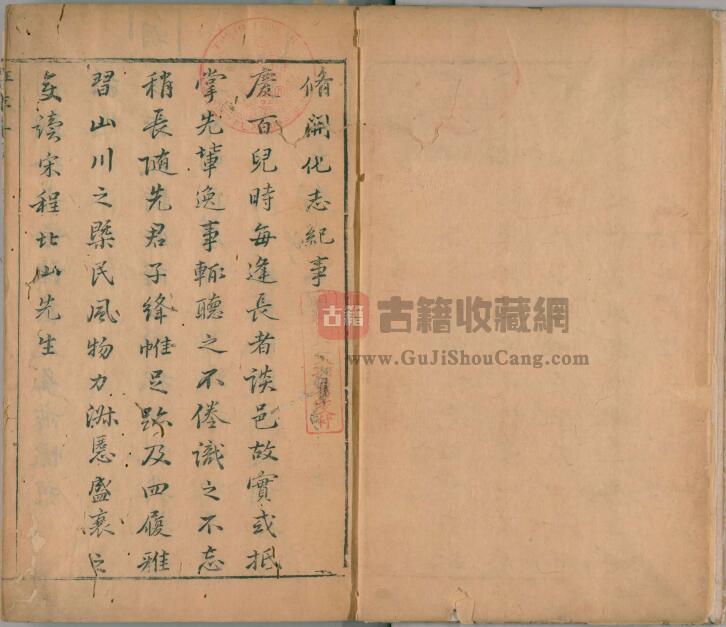 脩開化志紀事
慶百兒時每逢長者談邑故實或抵
掌先軰逸事輒聽之不倦識之不忘
稍長隨先君子絳帷足跡及四履雅
習山川之槩民風物力淑慝盛衰之
讀宋程北山先生
古籍
古籍收藏網
www.GuJiShouCang.com